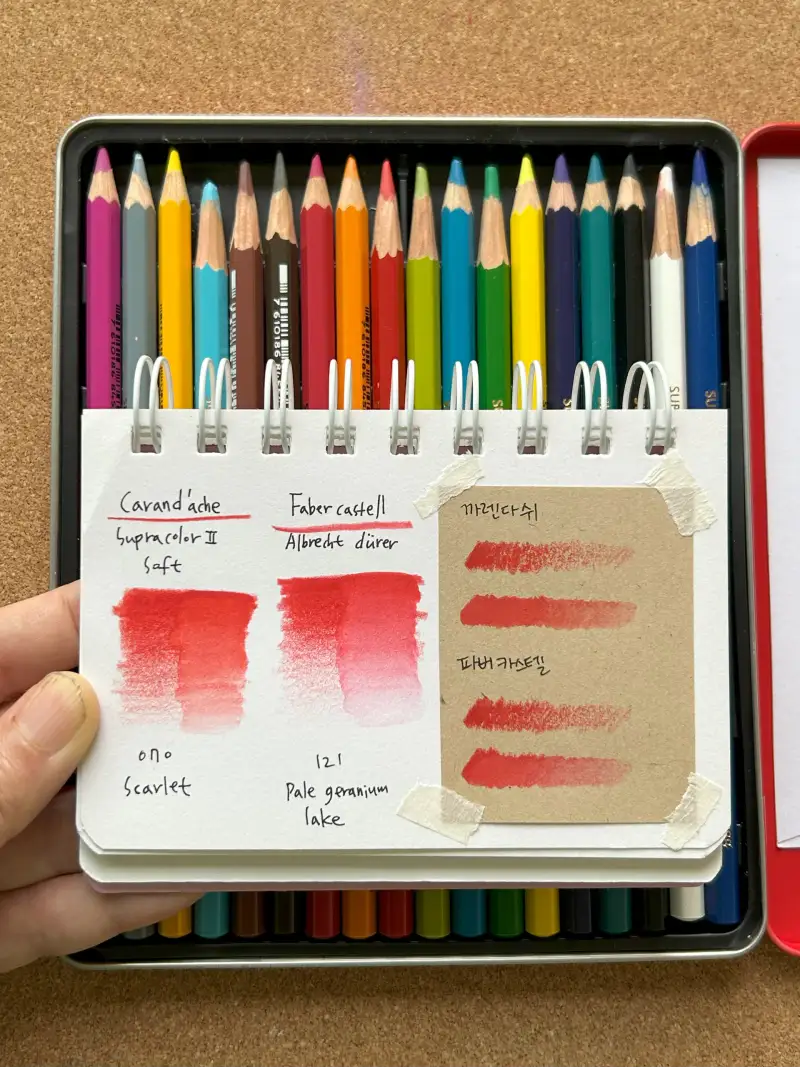 Carand'ache
Supracolor II
Soft
070
Scarlet
Faber castell
Albrecht dürer
121
Pale geranium
lake
까렌다쉬
파버카스텔